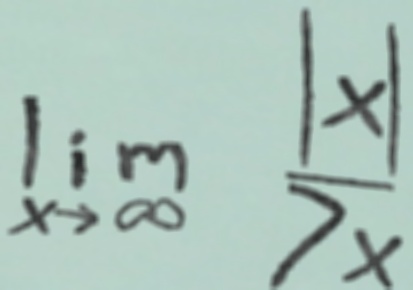 lim x→∞ |x| / >x